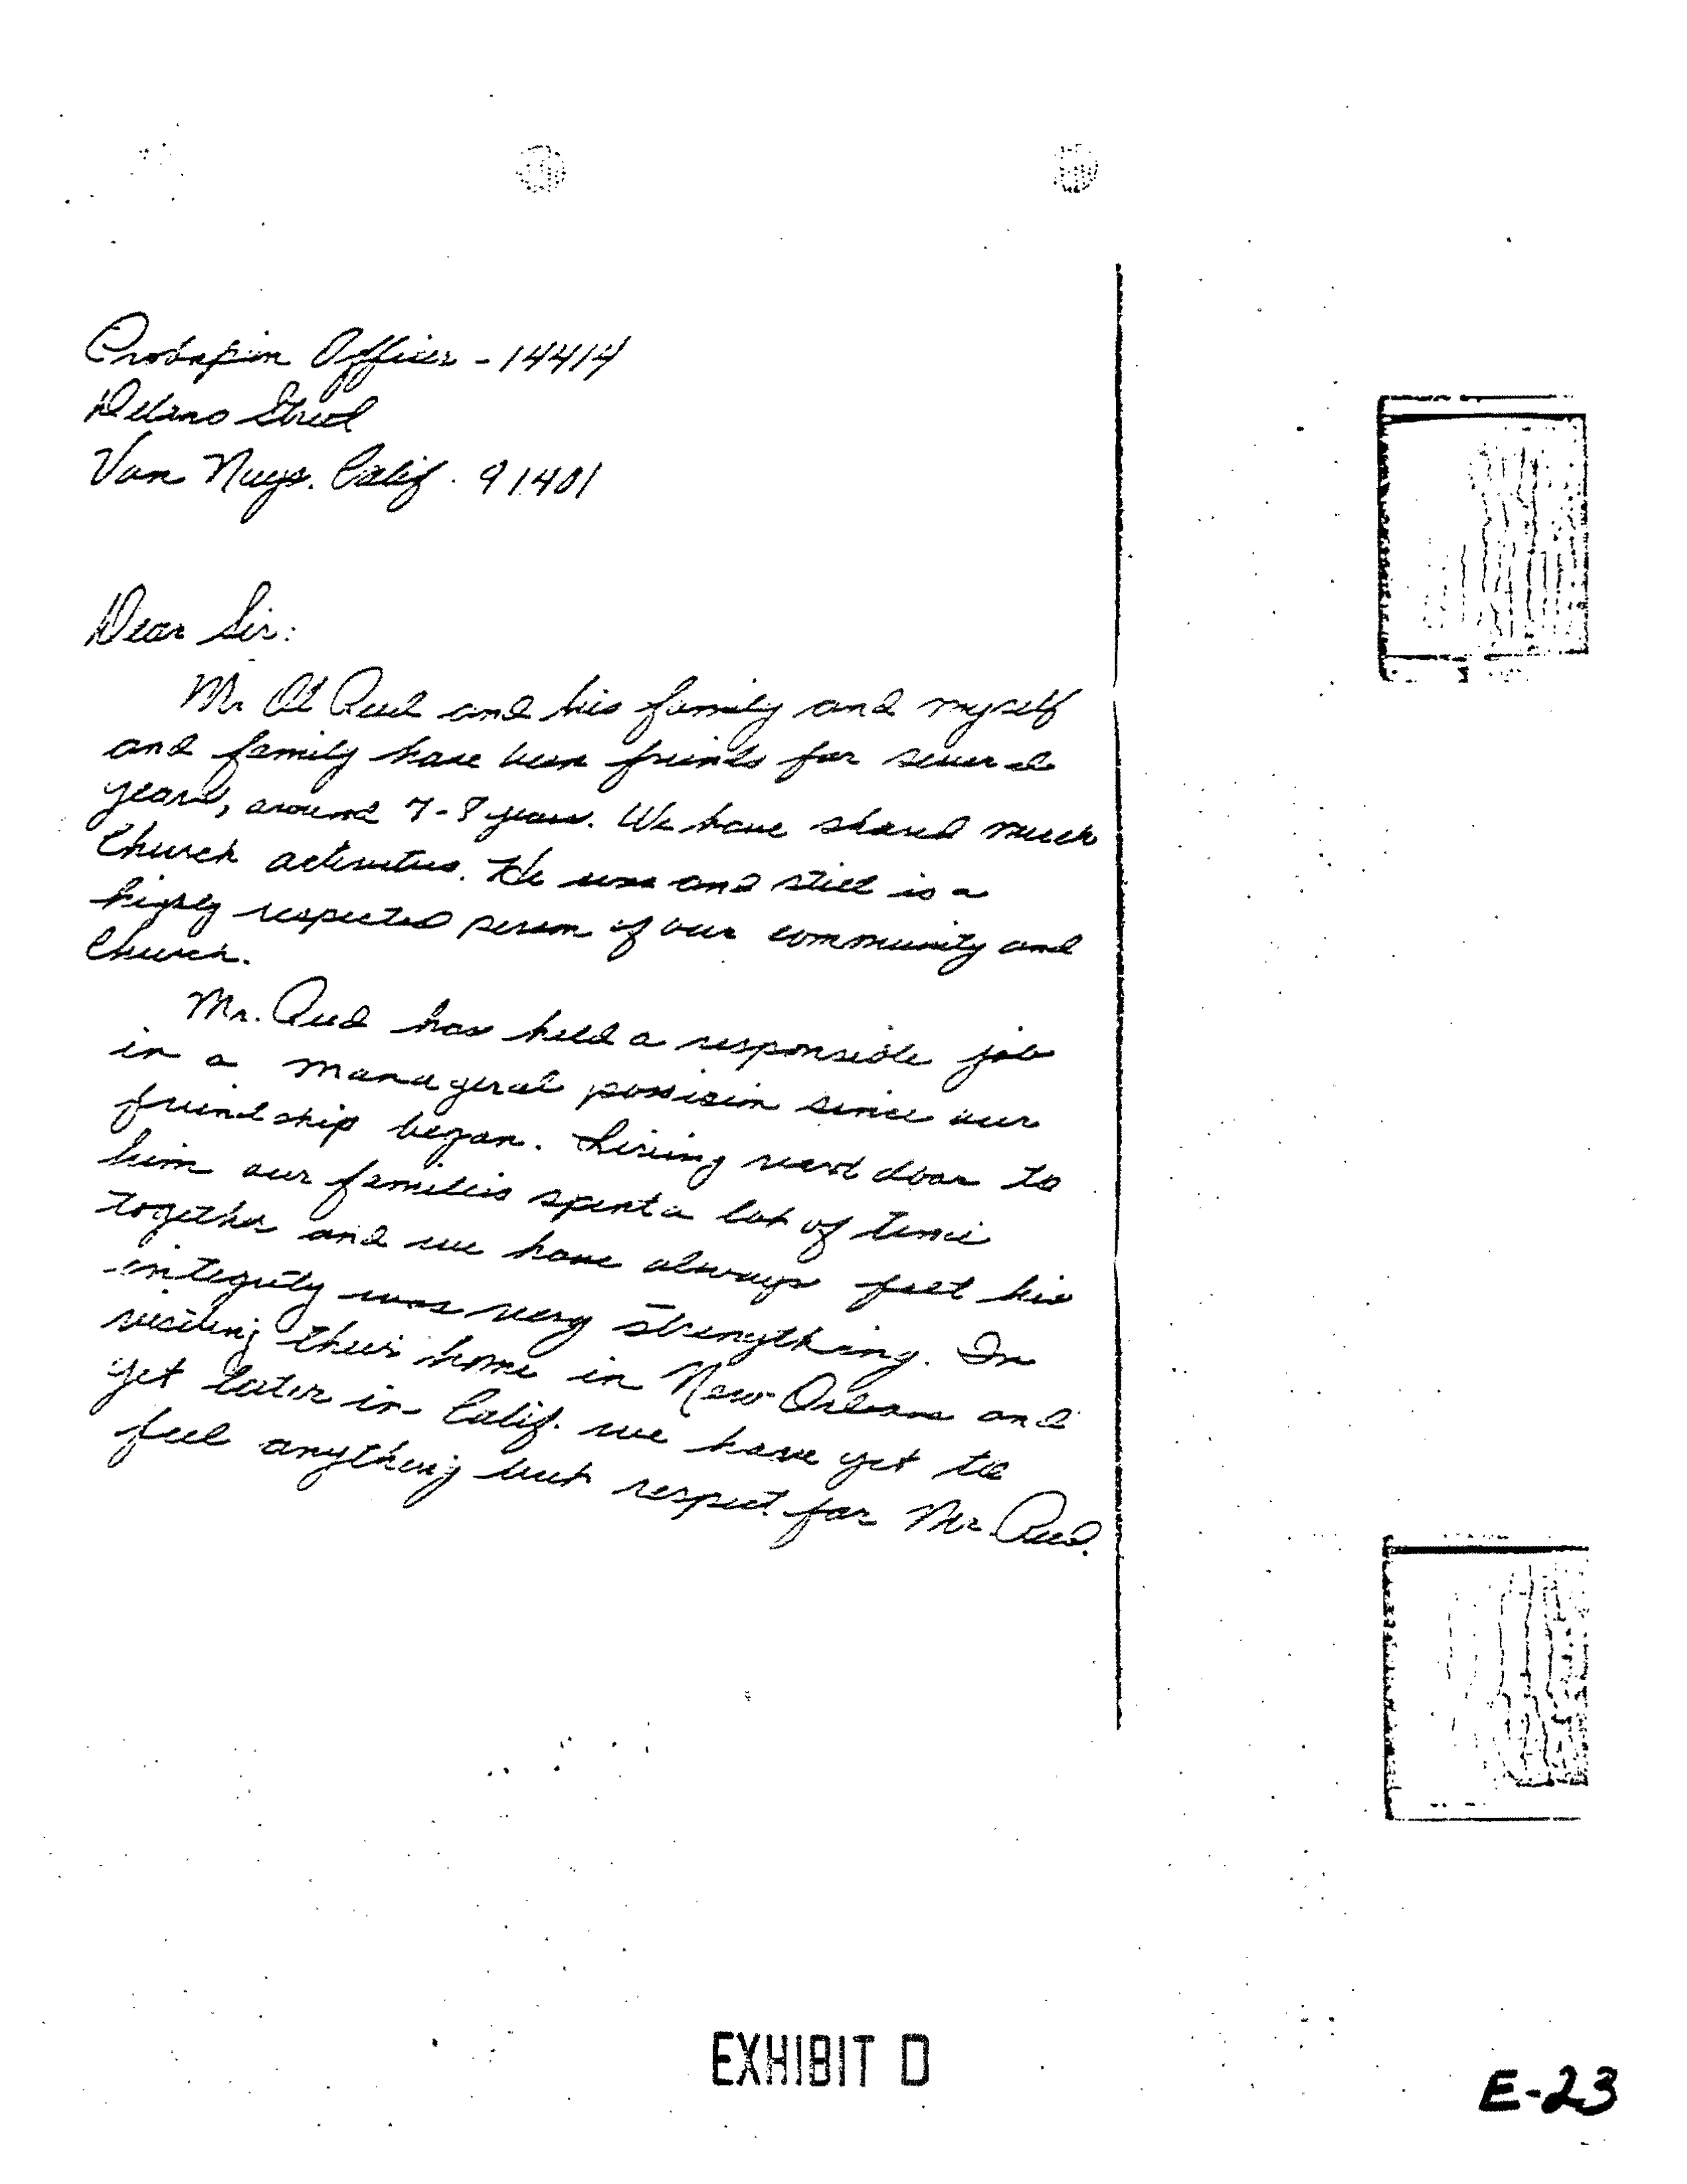 Probation Officer - 14414
Delano Street
Van Nuys. Calif. 91401
Dear Sir:
Mr Al Reed and his family and myself
and family have been friends for several
years, around 7-8 years. We have shared much
Church activities. He was and still is a
highly respected person of our community and
Church.
Mr. Reed has held a responsible job
in a manageral possision since our
friendship began. Living next door to
him our families spent a lot of time
together and we have always felt his
integrity was very strengthing. In
visiting their home in New Orleans and
yet later in Calif. we have yet to
feel anything but respect for Mr Reed.
EXHIBIT D
E-23